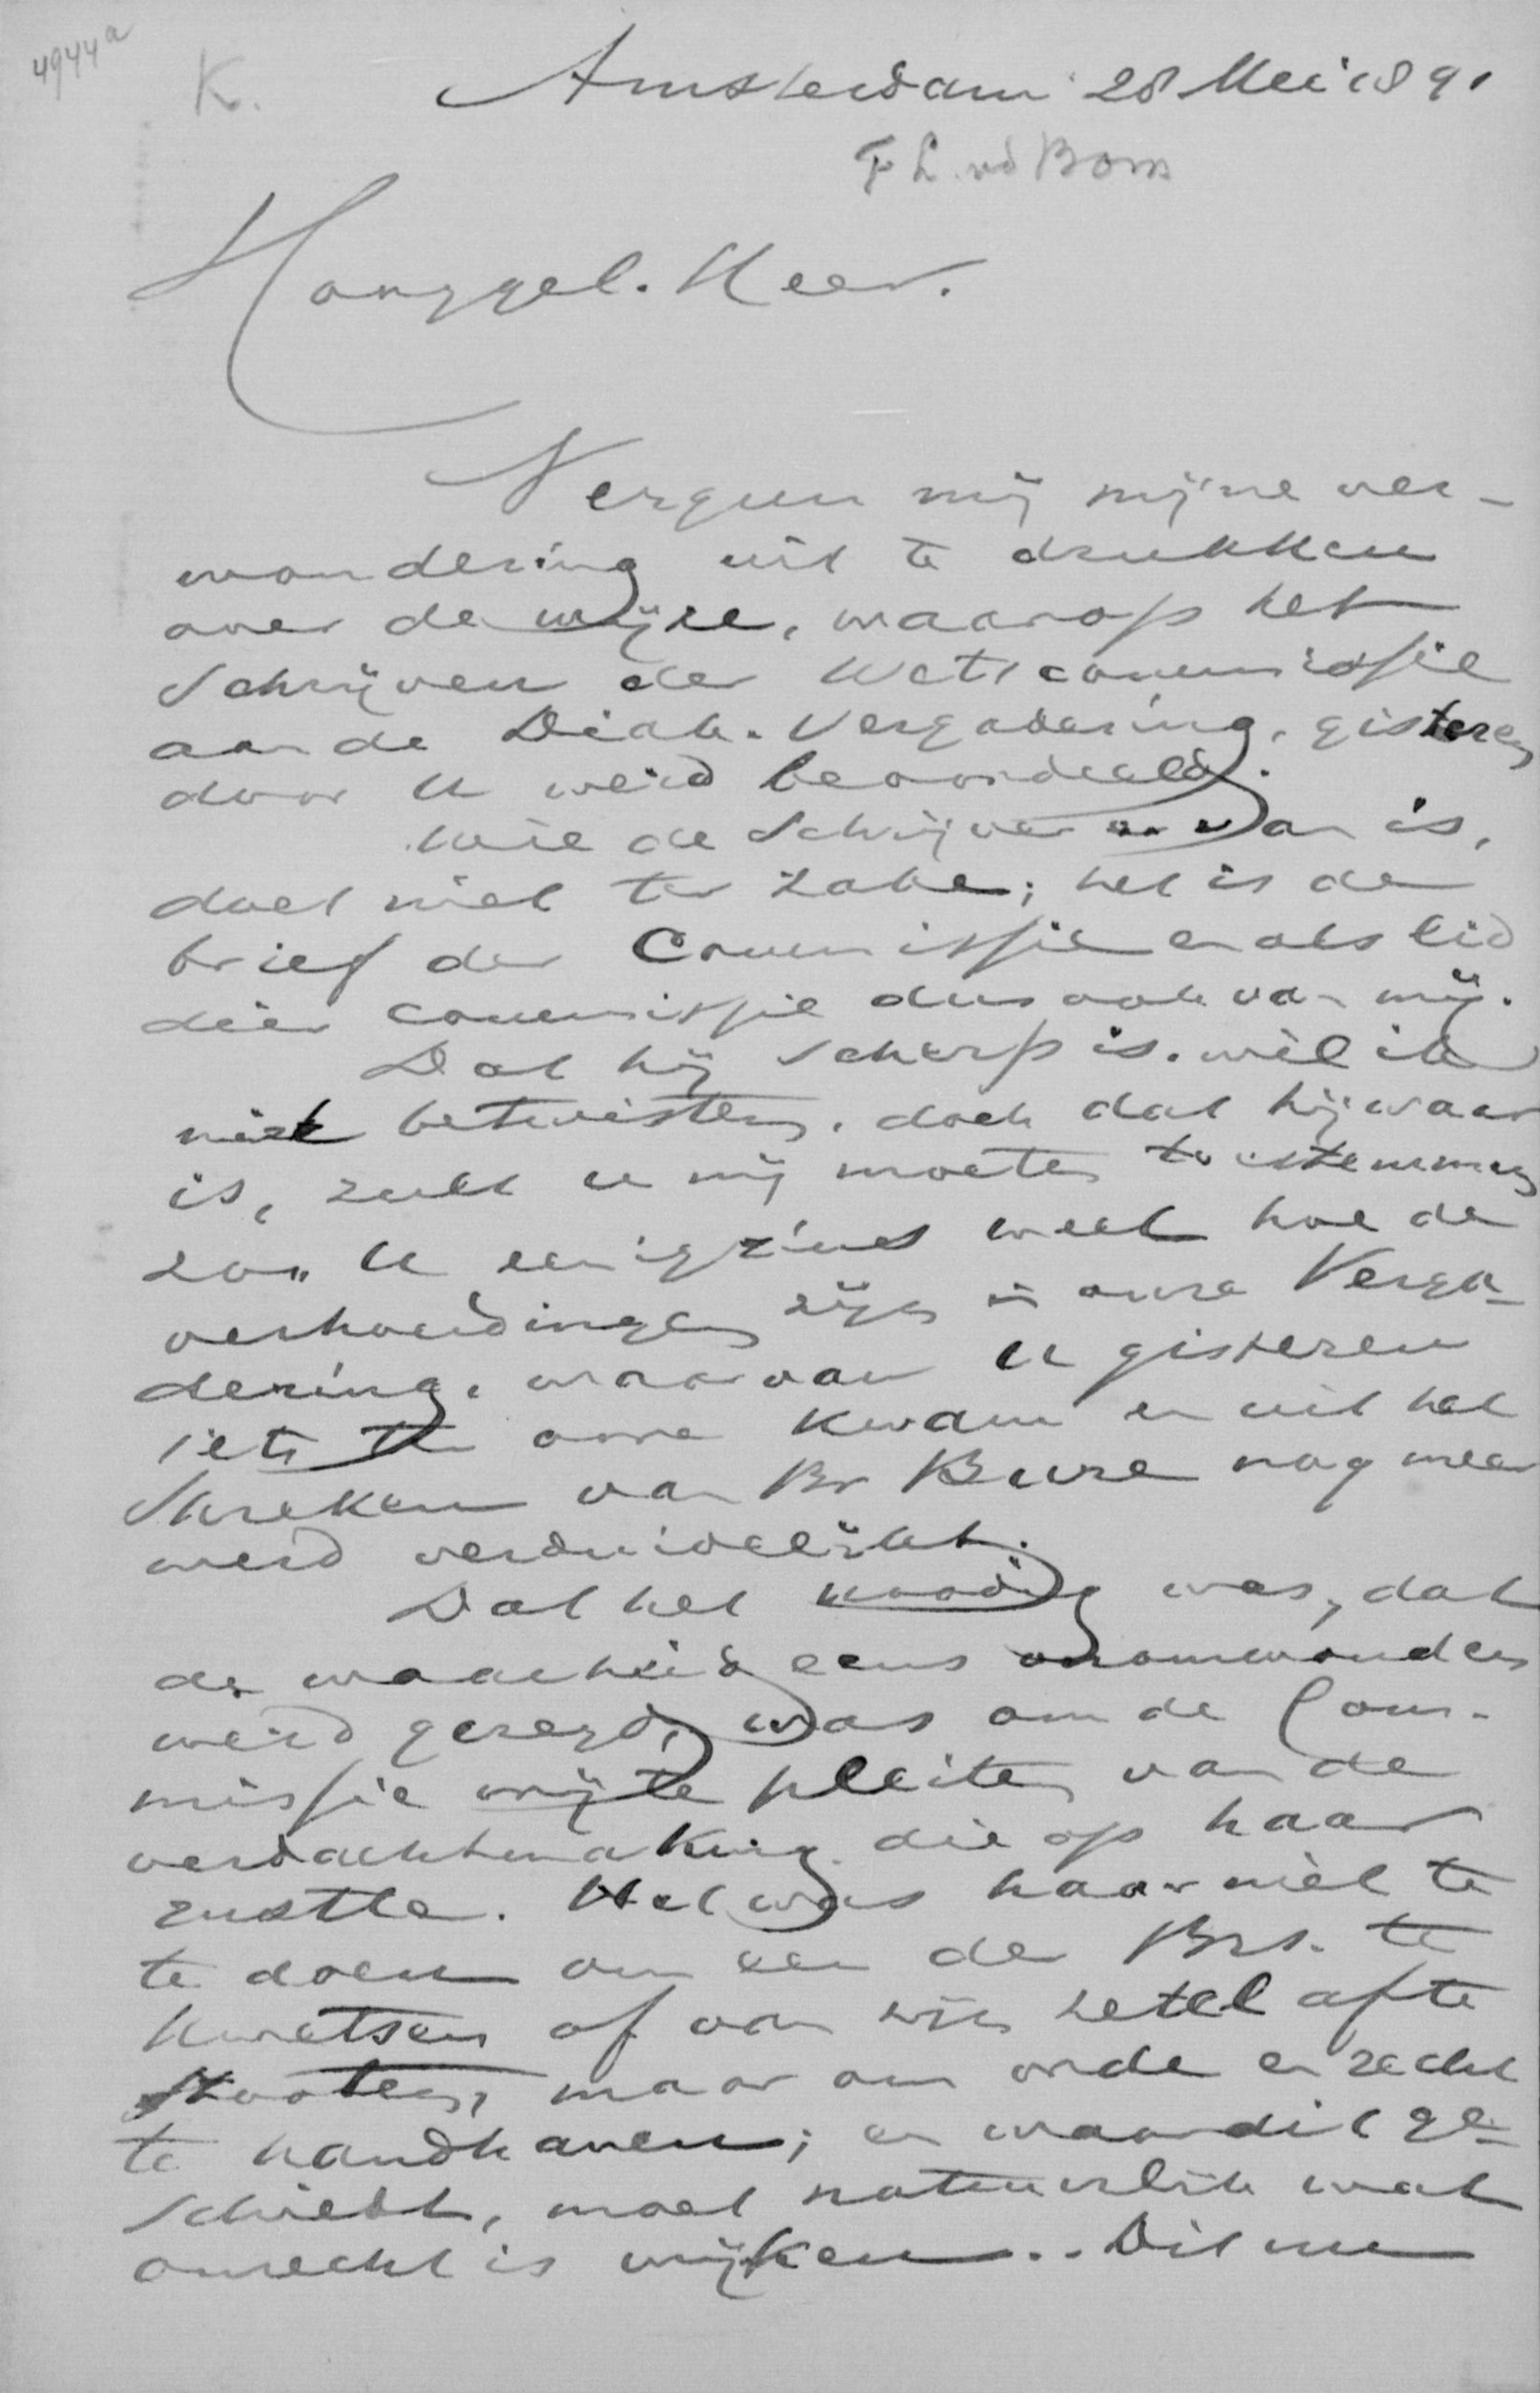 4944a
K.
Amsterdam 28 Mei 1891
F L. vd Bom
Hooggel. Heer.
Vergun mij mijne ver-
wondering uit te drukken
over de wijze, waarop het
schrijven der Wetscommissie
aan de Diak. Vergadering, gisteren
door U werd beoordeeld.
Wie de Schrijver er van is,
doet niet ter zake; het is de
brief der Commissie en als lid
dier commissie dus ook van mij.
Dat hij scherp is. wil ik
niet betwisten, doch dat hij waar
is, zult u mij moeten toestemmen
zoo U eenigzins weet hoe de
verhoudingen zijn in onze Verga-
dering, waarvan U gisteren
iets ter oore kwam en uit het
spreken van Br Buze nog meer
werd verduidelijkt.
Dat het noodig was, dat
de waarheid eens onomwonden
werd gezegd, was om de Com-
missie vrij te pleiten van de
verdachtmaking die op haar
rustte. Het was haar niet te
te doen om een der Brs. te
kwetsen of van zijn zetel af te
stooten, maar om orde en recht
te handhaven; en waar dit ge-
schiedt, moet natuurlijk wat
onrecht is wijken.. Dit nu